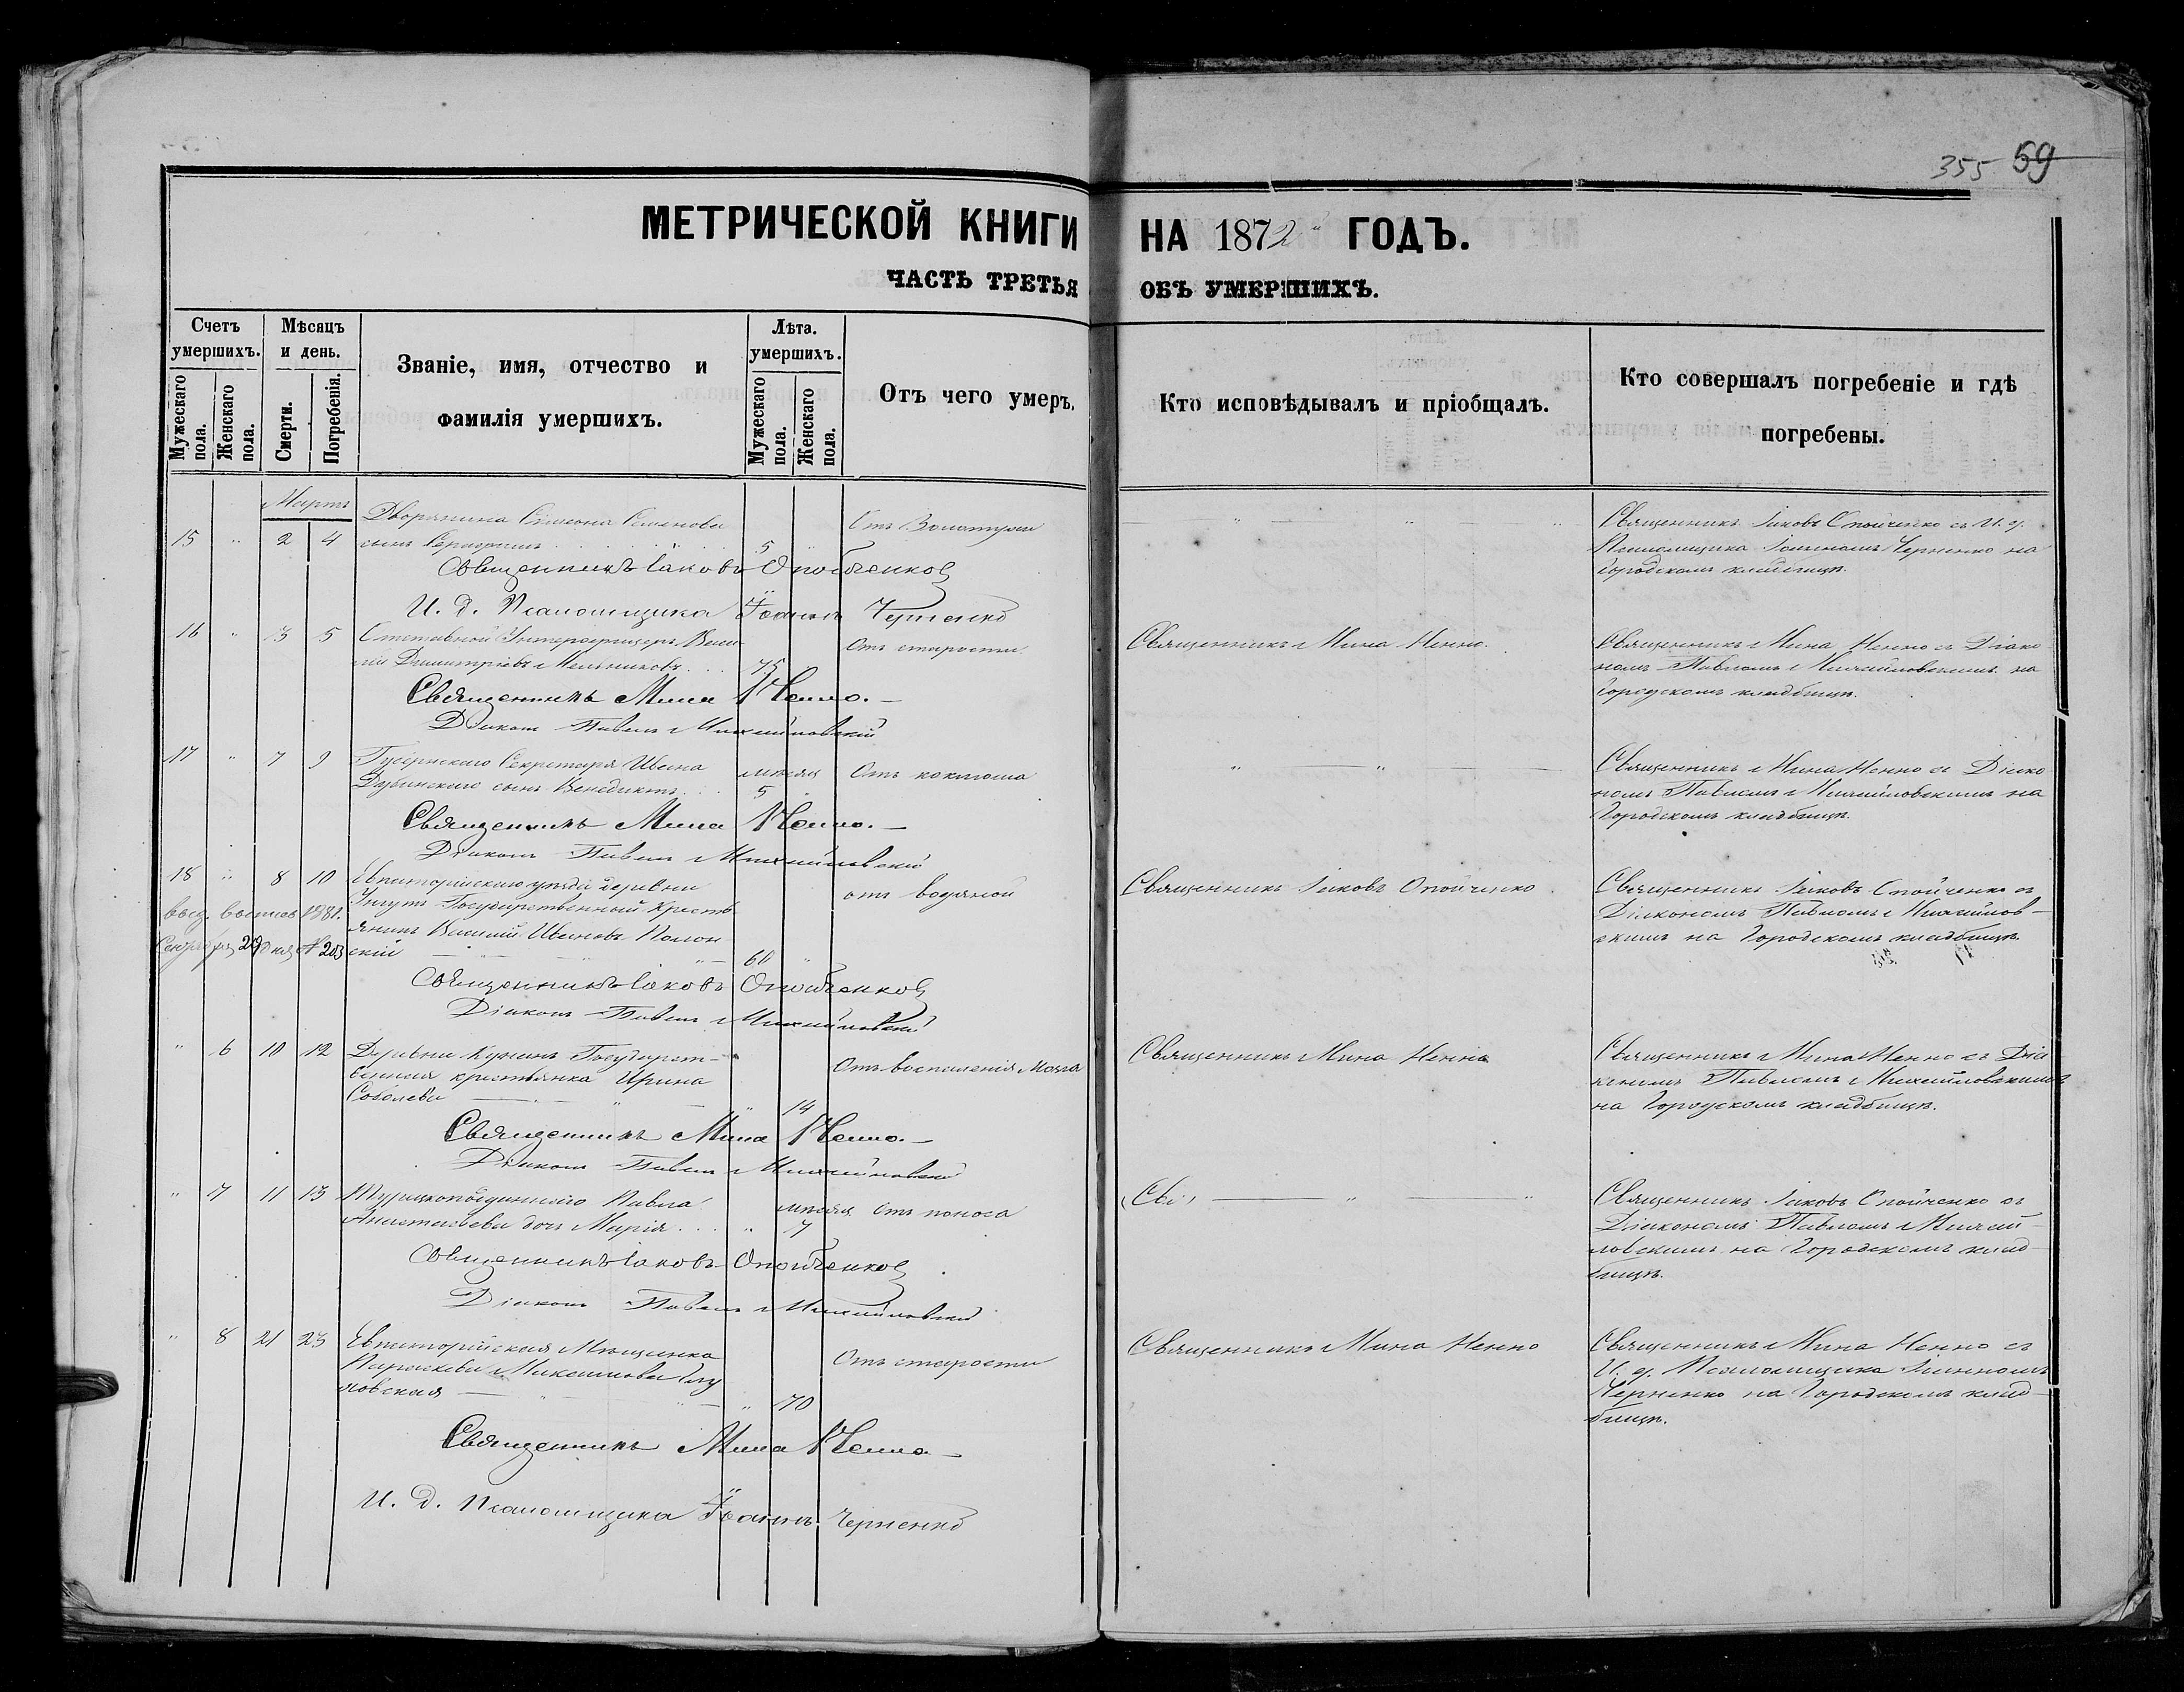 355 59
МЕТРИЧЕСКОЙ КНИГИ НА 1872 ГОДЪ.
ЧАСТЬ ТРЕТЬЯ ОБЪ УМЕРШИХЪ.
Счетъ умершихъ.
Мужескаго пола.
Женскаго пола.
Мѣсяцъ и день.
Смерти.
Погребенія.
Званіе, имя, отчество и
фамилія умершихъ.
Лѣта. умершихъ.
Мужескаго пола.
Женскаго пола.
Отъ чего умеръ.
Кто исповѣдывалъ и пріобщалъ.
Кто совершалъ погребеніе и гдѣ
погребены.
Мартъ
15 " 2 4 Дворянина Симеона Семенова
сынъ 5
Отъ
Священникъ Іаковъ Опойченко съ И. д.
Псаломщика Іоанномъ Черненко на
Городскомъ кладбищѣ.
Священникъ Іаковъ Опойченко
И. д. Псаломщика Іоаннъ Черненко
16 " 3 5 Отставной Унтерофицеръ Васи-
лій Димитріевъ Мельниковъ 75
Отъ старости
Священникъ Мина Ненно.
Священникъ Мина Ненно съ Діако
номъ Павломъ Михайловскимъ на
Городскомъ кладбищѣ.
Священникъ Мина Ненно.
Діаконъ Павелъ Михайловскій
17 " 7 9 Губернскаго Секретаря Ивана
Дубинскаго сынъ Венедиктъ мѣсяц 5
Отъ коклюша
Священникъ Мина Ненно съ Діако
номъ Павломъ Михайловскимъ на
Городскомъ кладбищѣ.
Священникъ Мина Ненно.
Діаконъ Павелъ Михайловскій
18 " 8 10 Евпаторійскаго уѣзда деревни
Государственный Кресть-
янинъ Василій Ивановъ Полон-
скій 60
выд. выпись 1881.
Сентября 29 дня № 203
отъ водяной
Священникъ Іаковъ Опойченко
Священникъ Іаковъ Опойченко съ
Діакономъ Павломъ Михайлов-
скимъ на Городскомъ кладбищѣ.
Священникъ Іаковъ Опойченко
Діаконъ Павелъ Михайловскій
" 6 10 12 Деревни Государст-
венная крестьянка Ирина
Соболева " 14
Отъ воспаленія Мозга
Священникъ Мина Ненно
Священникъ Мина Ненно съ Діа
кономъ Павломъ Михайловскимъ
на Городскомъ кладбищѣ.
Священникъ Мина Ненно.
Діаконъ Павелъ Михайловскій
" 7 11 13 Турецкоподданнаго Павла
Анастасьева дочь Марія " мѣсяц 7
Отъ поноса
Священникъ Іаковъ Опойченко съ
Діакономъ Павломъ Михай-
ловскимъ на Городскомъ клад-
бищѣ.
Священникъ Іаковъ Опойченко
Діаконъ Павелъ Михайловскій
" 8 21 23 Евпаторійская Мѣщанка
Параскева
" 70
Отъ старости
Священникъ Мина Ненно
Священникъ Мина Ненно съ
И. д. Псаломщика Іоанномъ
Черненко на Городскомъ клад-
бищѣ.
Священникъ Мина Ненно
И. д. Псаломщика Іоаннъ Черненко